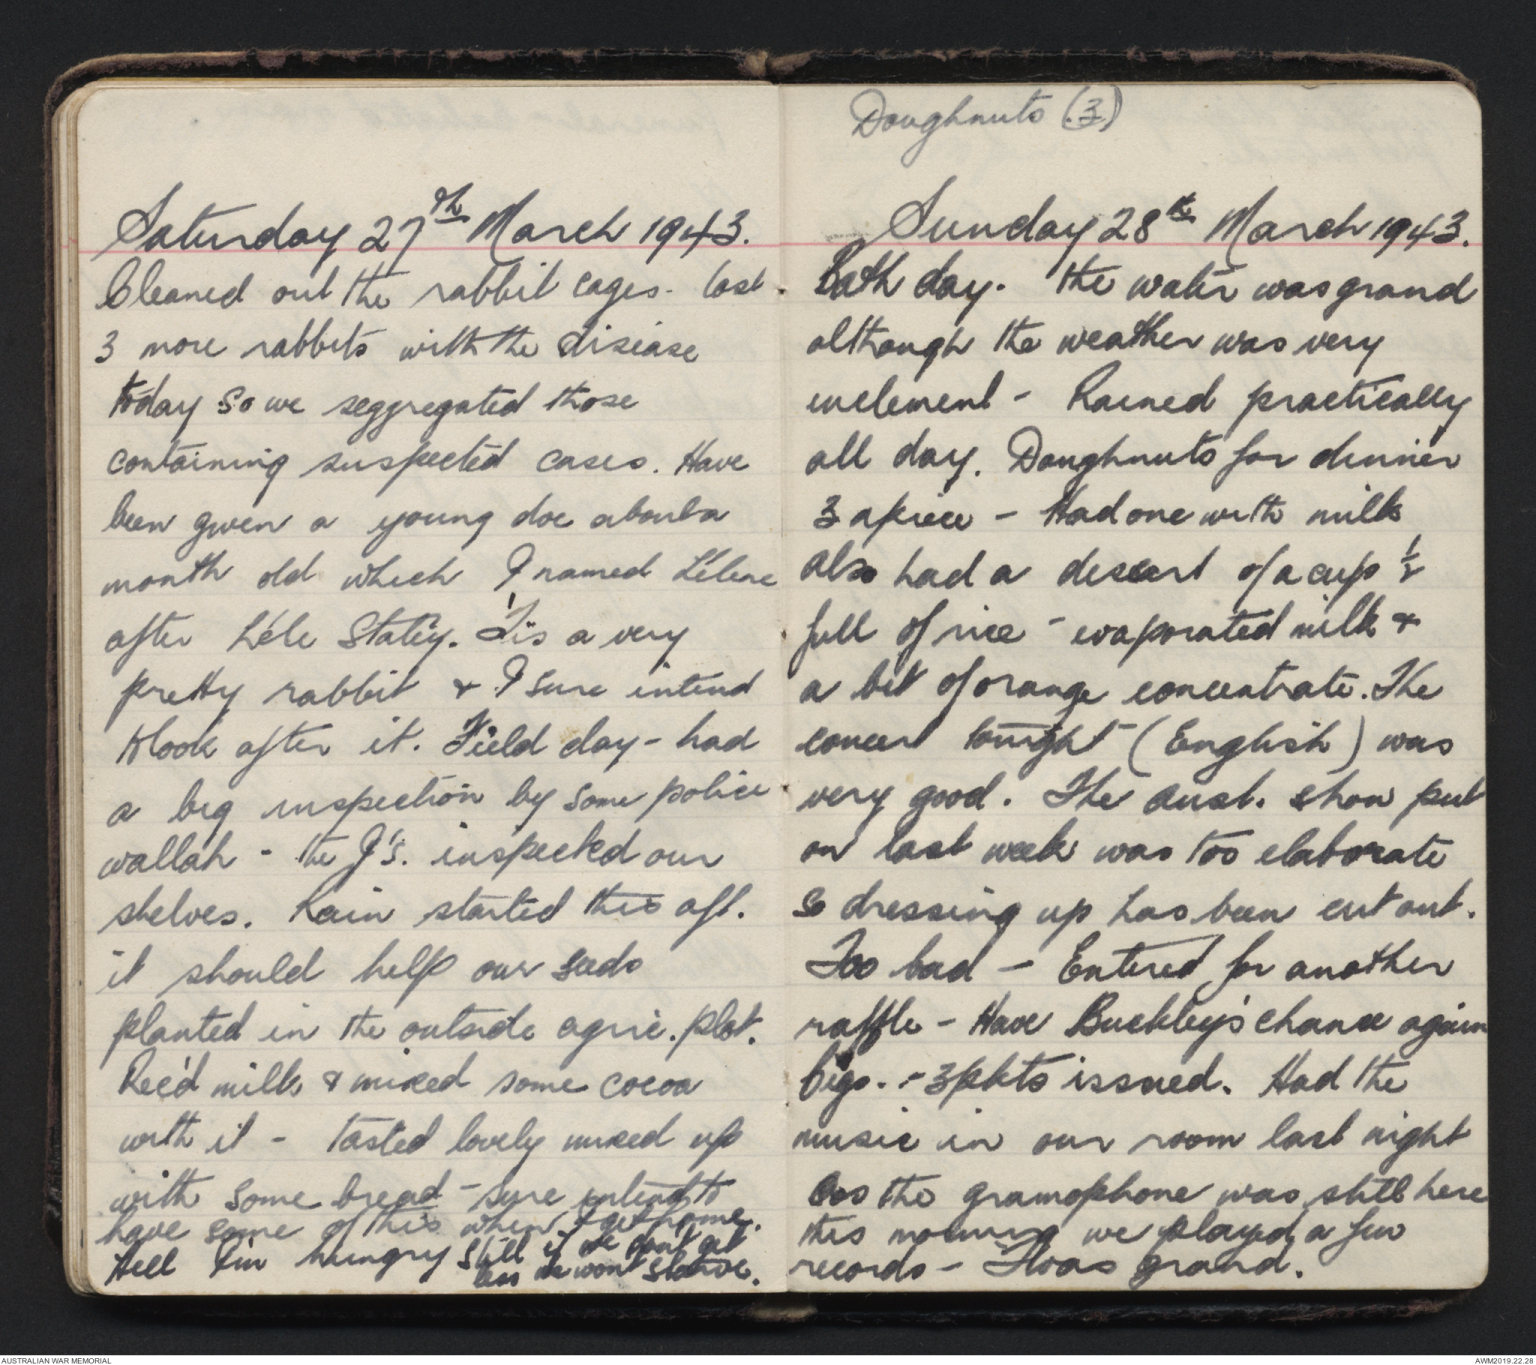 Saturday 27th March 1943.
Cleaned out the rabbit cages. Lost
3 more rabbits with the disease
today so we seggregated those
containing suspected cases. Have
been given a young doe about a
month old which I named Lélene
after Léle Statey. 'Tis a very
pretty rabbit & I sure intend
to look after it. Field day - had
a big inspection by some police
wallah - the J's. inspected our
shelves. Rain started this aft.
it should help our seeds
planted in the outside agric. plot.
Rec'd milk & mixed some cocoa
with it - tasted lovely mixed up
with some bread - sure intend to
have some of this when I get home.
Hell I'm hungry still if we don't get
less we won't starve.
Doughnuts (3)
Sunday 28th March 1943.
Bath day. The water was grand
although the weather was very
inclement - Rained practically
all day. Doughnuts for dinner
3 apiece - Had one with milk
also had a dessert of a cup 1/2
full of rice - evaporated milk &
a bit of orange concentrate. The
concert tonight (English) was
very good. The Aust. show put
on last week was too elaborate
so dressing up has been cut out.
Too bad - Entered for another
raffle - Have Buckley's chance again
Cigs. - 3 pkts issued. Had the
music in our room last night
As the gramophone was still here
this morning we played a few
records - Twas grand.
AUSTRALIAN WAR MEMORIAL
AWM2019.22.28